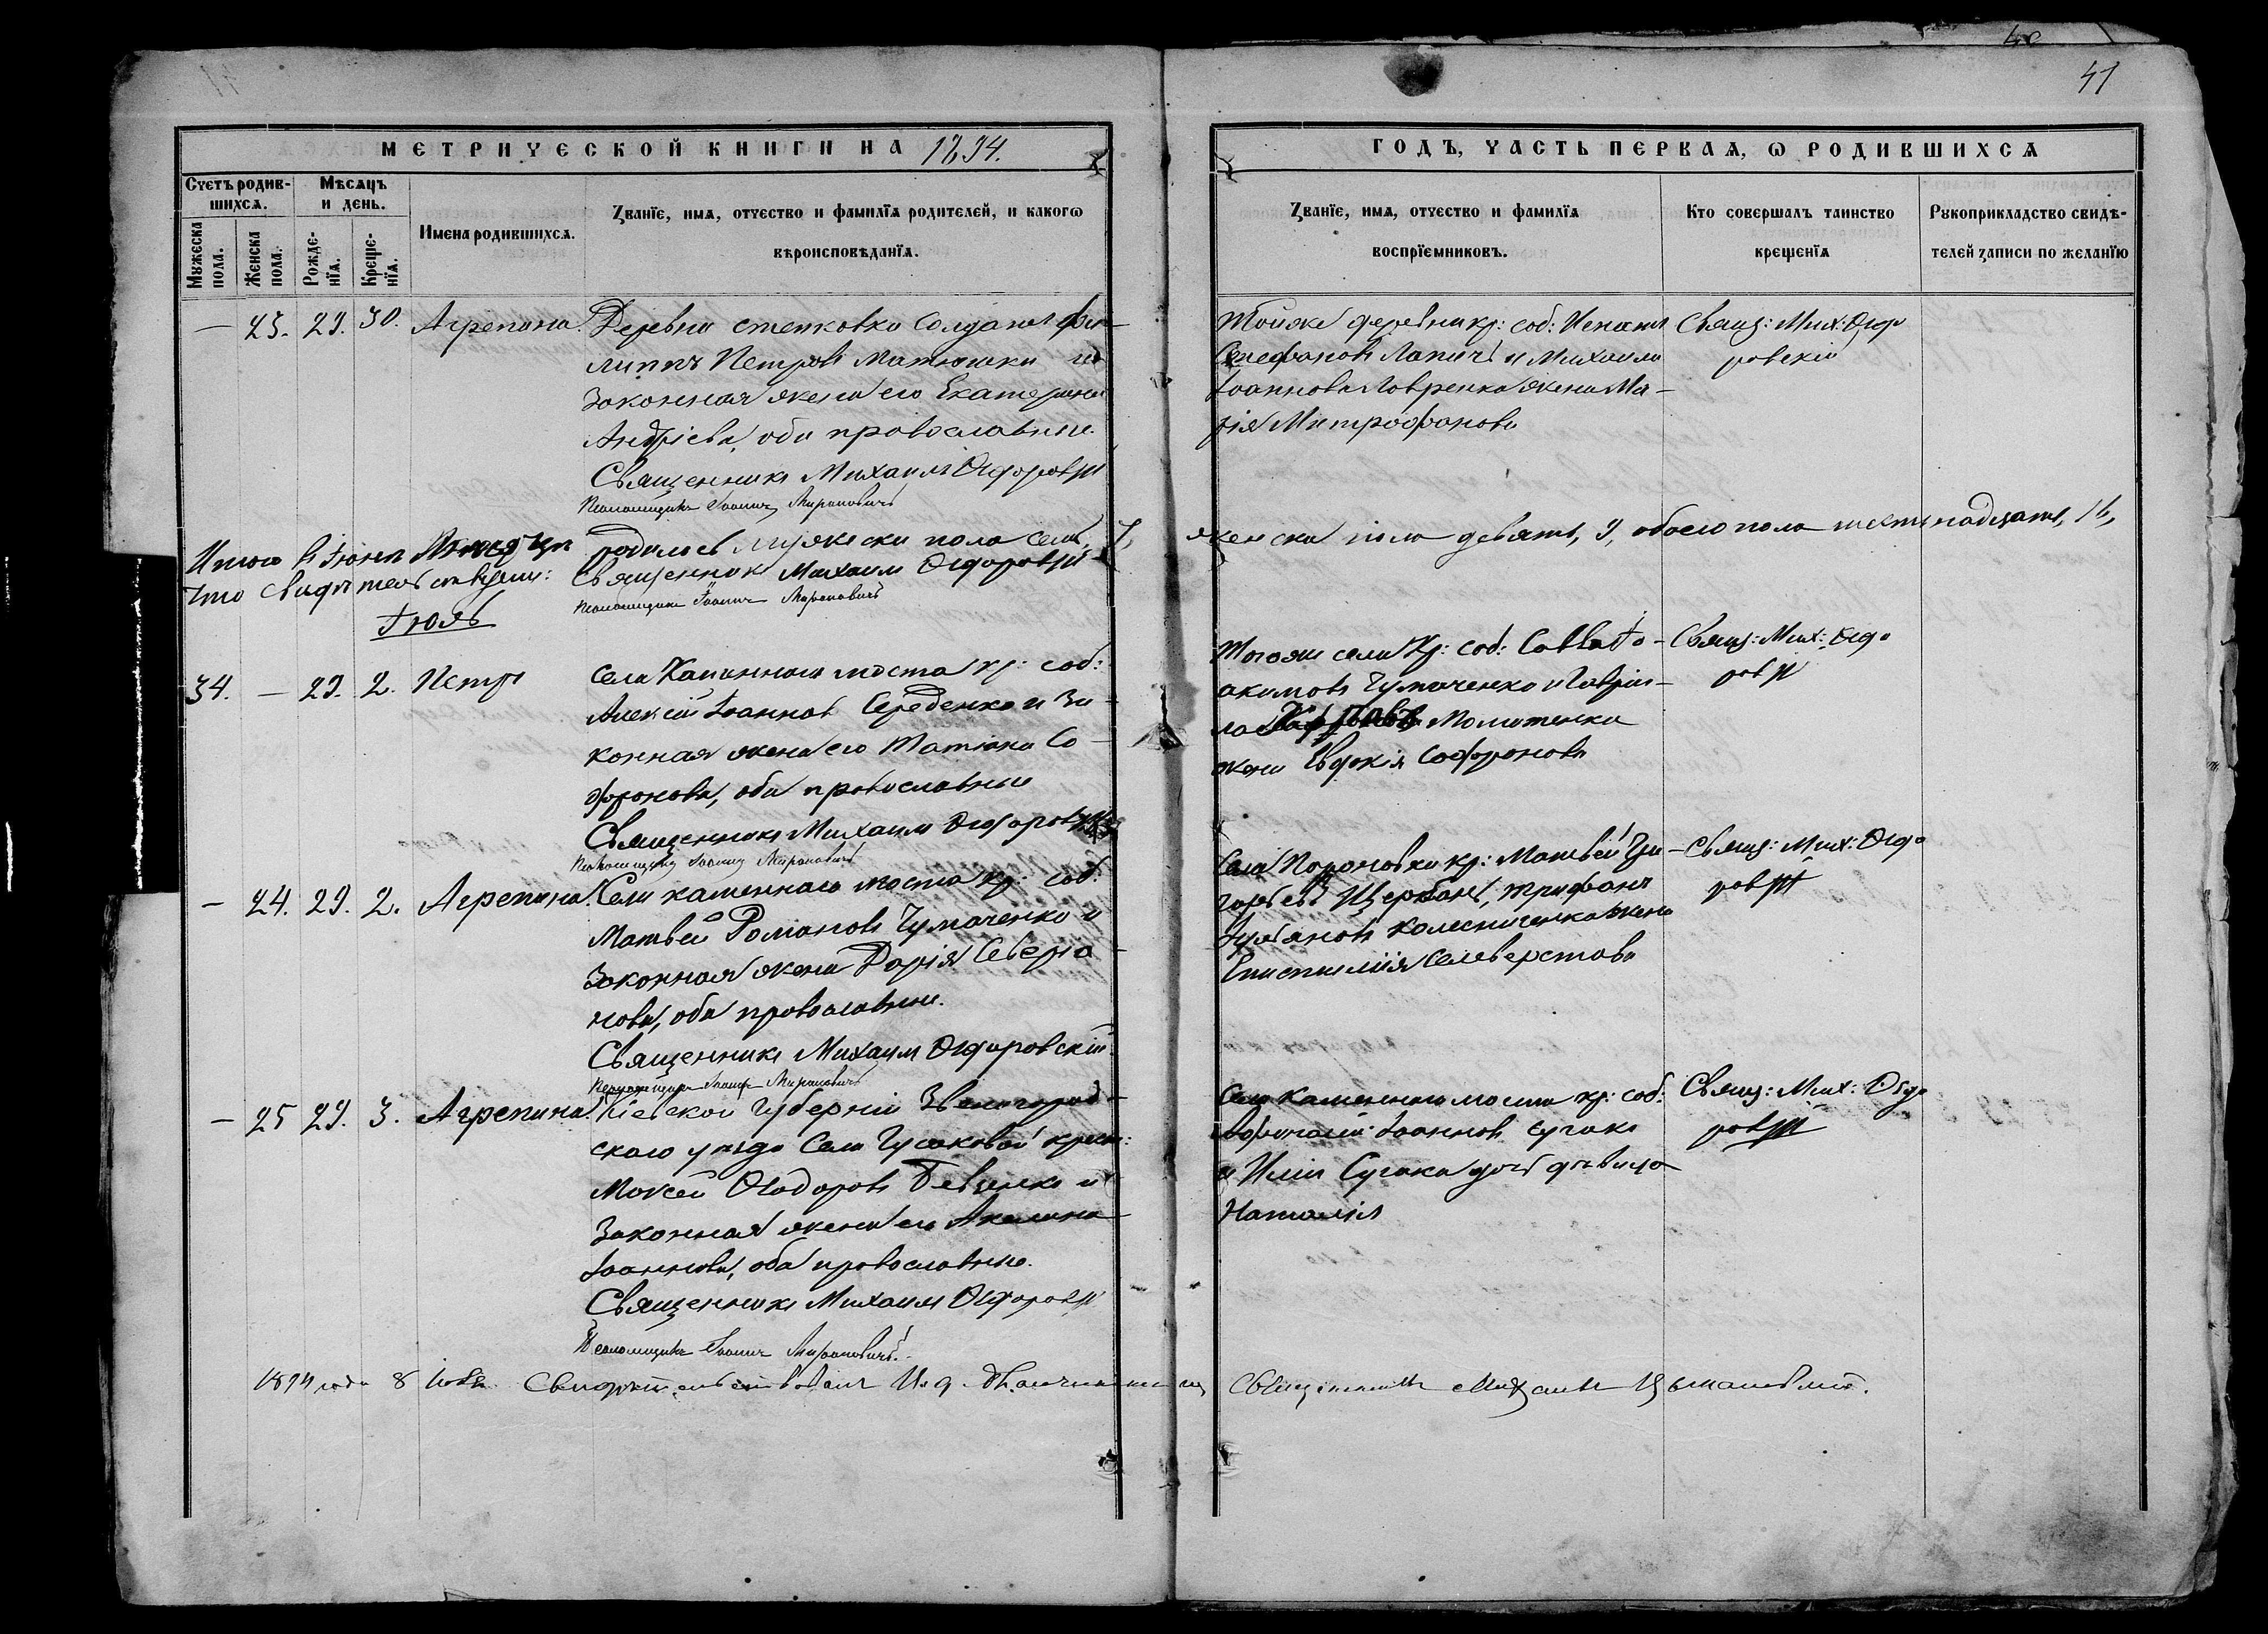 40
41
МЕТРИЧЕСКОЙ КНИГИ НА 1894.
ГОДЪ, ЧАСТЬ ПЕРВАЯ, Ѡ РОДИВШИХСЯ
Счетъ родив-
шихся.
Мѣсяцъ
и день.
Мужеска
пола.
Женска
пола.
Рожде-
нїя.
Креще-
нїя.
Имена родившихся.
Званїе, имя, отчество и фамилїя родителей, и какогѡ
вѣроисповѣданїя.
Званїе, имя, отчество и фамилїя
воспрїемниковъ.
Кто совершалъ таинство
крещенїя
Рукоприкладство свидѣ-
телей записи по желанїю
— 23. 29. 30. Агрепина. Деревни Степковки Солдатъ Фи-
липпъ Петровъ Матюшки и
Законная жена его Екатерина
Андрiева, оба православные.
Священникъ Михаилъ Ѳедоровскій
Псаломщикъ Іоаннъ Мироновичъ
Тойже деревни кр: соб: Игнатъ
Стефановъ Лапичъ и Михаила
Іоаннова Лавренка жена Ма-
рія Митрофанова
Свящ: Мих: Ѳедо
ровскій
Итого въ Іюнѣ Месяцѣ родилось мужеска пола семь, 7, женска пола девять, 9, обоего пола шестьнадцать, 16,
Что свидѣтельствуемъ: Священникъ Михаилъ Ѳедоровскій
Псаломщикъ Іоаннъ Мироновичъ
Іюль
34. — 29. 2. Петръ Села Каменнаго моста кр: соб:
Алексій Іоанновъ Середенко и За-
конная жена его Татіана Со-
фронова, оба православные
Священникъ Михаилъ Ѳедоровскій
Псаломщикъ Іоаннъ Мироновичъ
Тогоже села Кр: соб: Савва Іо-
акимовъ Чумаченко и Гаврии-
ла Молитенка
жена Евдокія Софронова
Свящ: Мих: Ѳедо
ровскій
— 24. 29. 2. Агрепина. Села каменнаго моста кр: соб:
Матвей Романовъ Чумаченко и
Законная жена Дарія Северіа-
нова, оба православные.
Священникъ Михаилъ Ѳедоровскій
Псаломщикъ Іоаннъ Мироновичъ
Села кр: Матвей Гри-
горьевъ Щербань, Трифана
колесниченка жена
Епистимія Селеверстова
Свящ: Мих: Ѳедо
ровскій
— 25 29. 3. Агрепина. Кіевской Губерніи Звенигород-
скаго уезда Села Гусаковой крест:
Моисей Ѳеодоровъ и
Законная жена его Акелина
Іоаннова, оба православные.
Священникъ Михаилъ Ѳедоровскій
Псаломщикъ Іоаннъ Мироновичъ.
Села Каменнаго моста кр: соб:
Афанасій Іоанновъ Сугака
и Иліи Сугака дочь девица
Наталія
Свящ: Мих: Ѳедо
ровскій
1894 года 8 Свидѣтельствовалъ И. д. Благочиннаго Священникъ Михаилъ